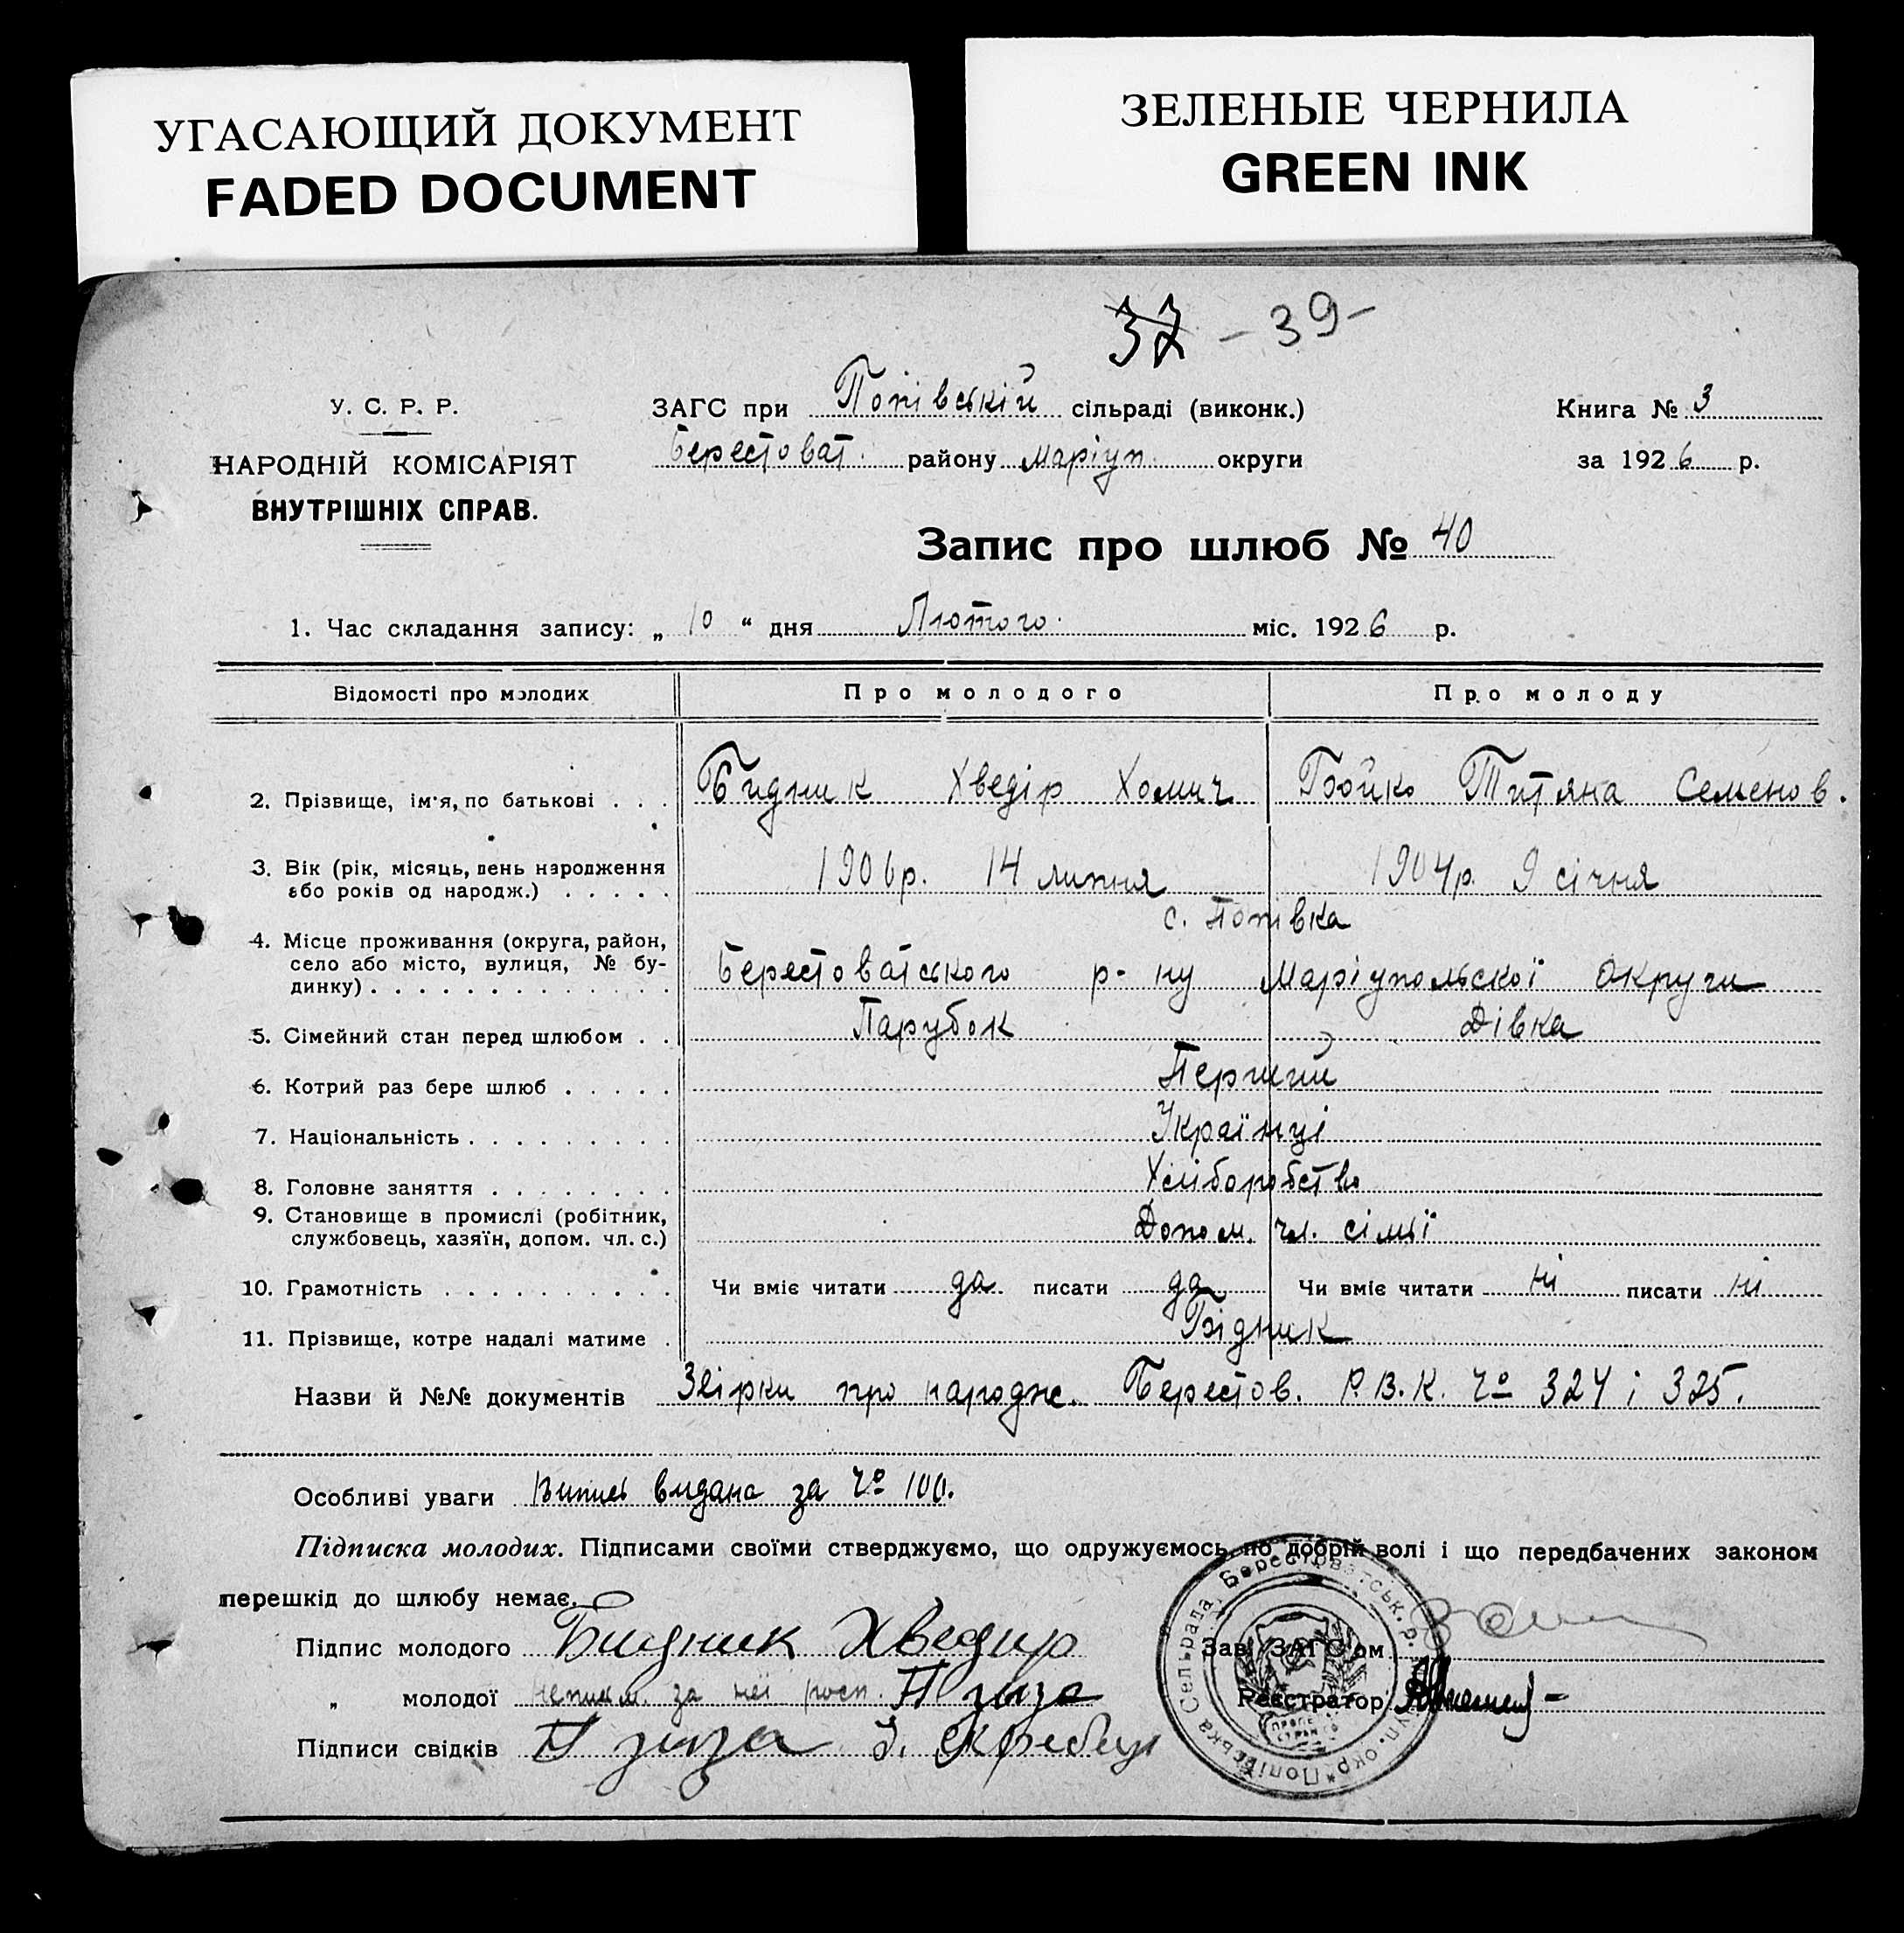 УГАСАЮЩИЙ ДОКУМЕНТ
FADED DOCUMENT
ЗЕЛЕНЫЕ ЧЕРНИЛА
GREEN INK
37 - 39 -
У. С. Р. Р.
НАРОДНІЙ КОМІСАРІЯТ
ВНУТРІШНІХ СПРАВ.
ЗАГС при Попівській сільраді (виконк.)
Берестоват. району Маріуп. округи
Книга № 3
за 1926 р.
Запис про шлюб № 40
1. Час складання запису: „ 10 “ дня Лютого міс. 1926 р.
Відомості про молодих Про молодого Про молоду
2. Прізвище, ім'я, по батькові . . . Бидник Хведір Хомич Бойко Титяна Семенов.
3. Вік (рік, місяць, день народження або років од народж.) . . . . . 1906р. 14 липня 1904р. 9 січня
с. Попівка
4. Місце проживання (округа, район, село або місто, вулиця, № будинку) . . . Берестоватського р-ну Маріупольскої округи
5. Сімейний стан перед шлюбом . . Парубок Дівка
6. Котрий раз бере шлюб . . . . . Перший
7. Національність . . . . . . . . . Українці
8. Головне заняття . . . . . . . . Хліборобство
9. Становище в промислі (робітник, службовець, хазяїн, допом. чл. с.) Допом. чл. сімьї
10. Грамотність . . . . . . . . . . Чи вміє читати да писати да Чи вміє читати ні писати ні
11. Прізвище, котре надалі матиме . Бідник
Назви й №№ документів Звірки про народж. Берестов. Р.В.К. Чо 324 і 325.
Особливі уваги Випись видана за Чо 100.
Підписка молодих. Підписами своїми стверджуємо, що одружуємось по добрій волі і що передбачених законом
перешкід до шлюбу немає.
Підпис молодого Бидник Хведир Зав. ЗАГС'ом
„ молодої неписьм. за неї росп. Реєстратор
Підписи свідків
Попівська Сельрада, Берестоватськ. р.